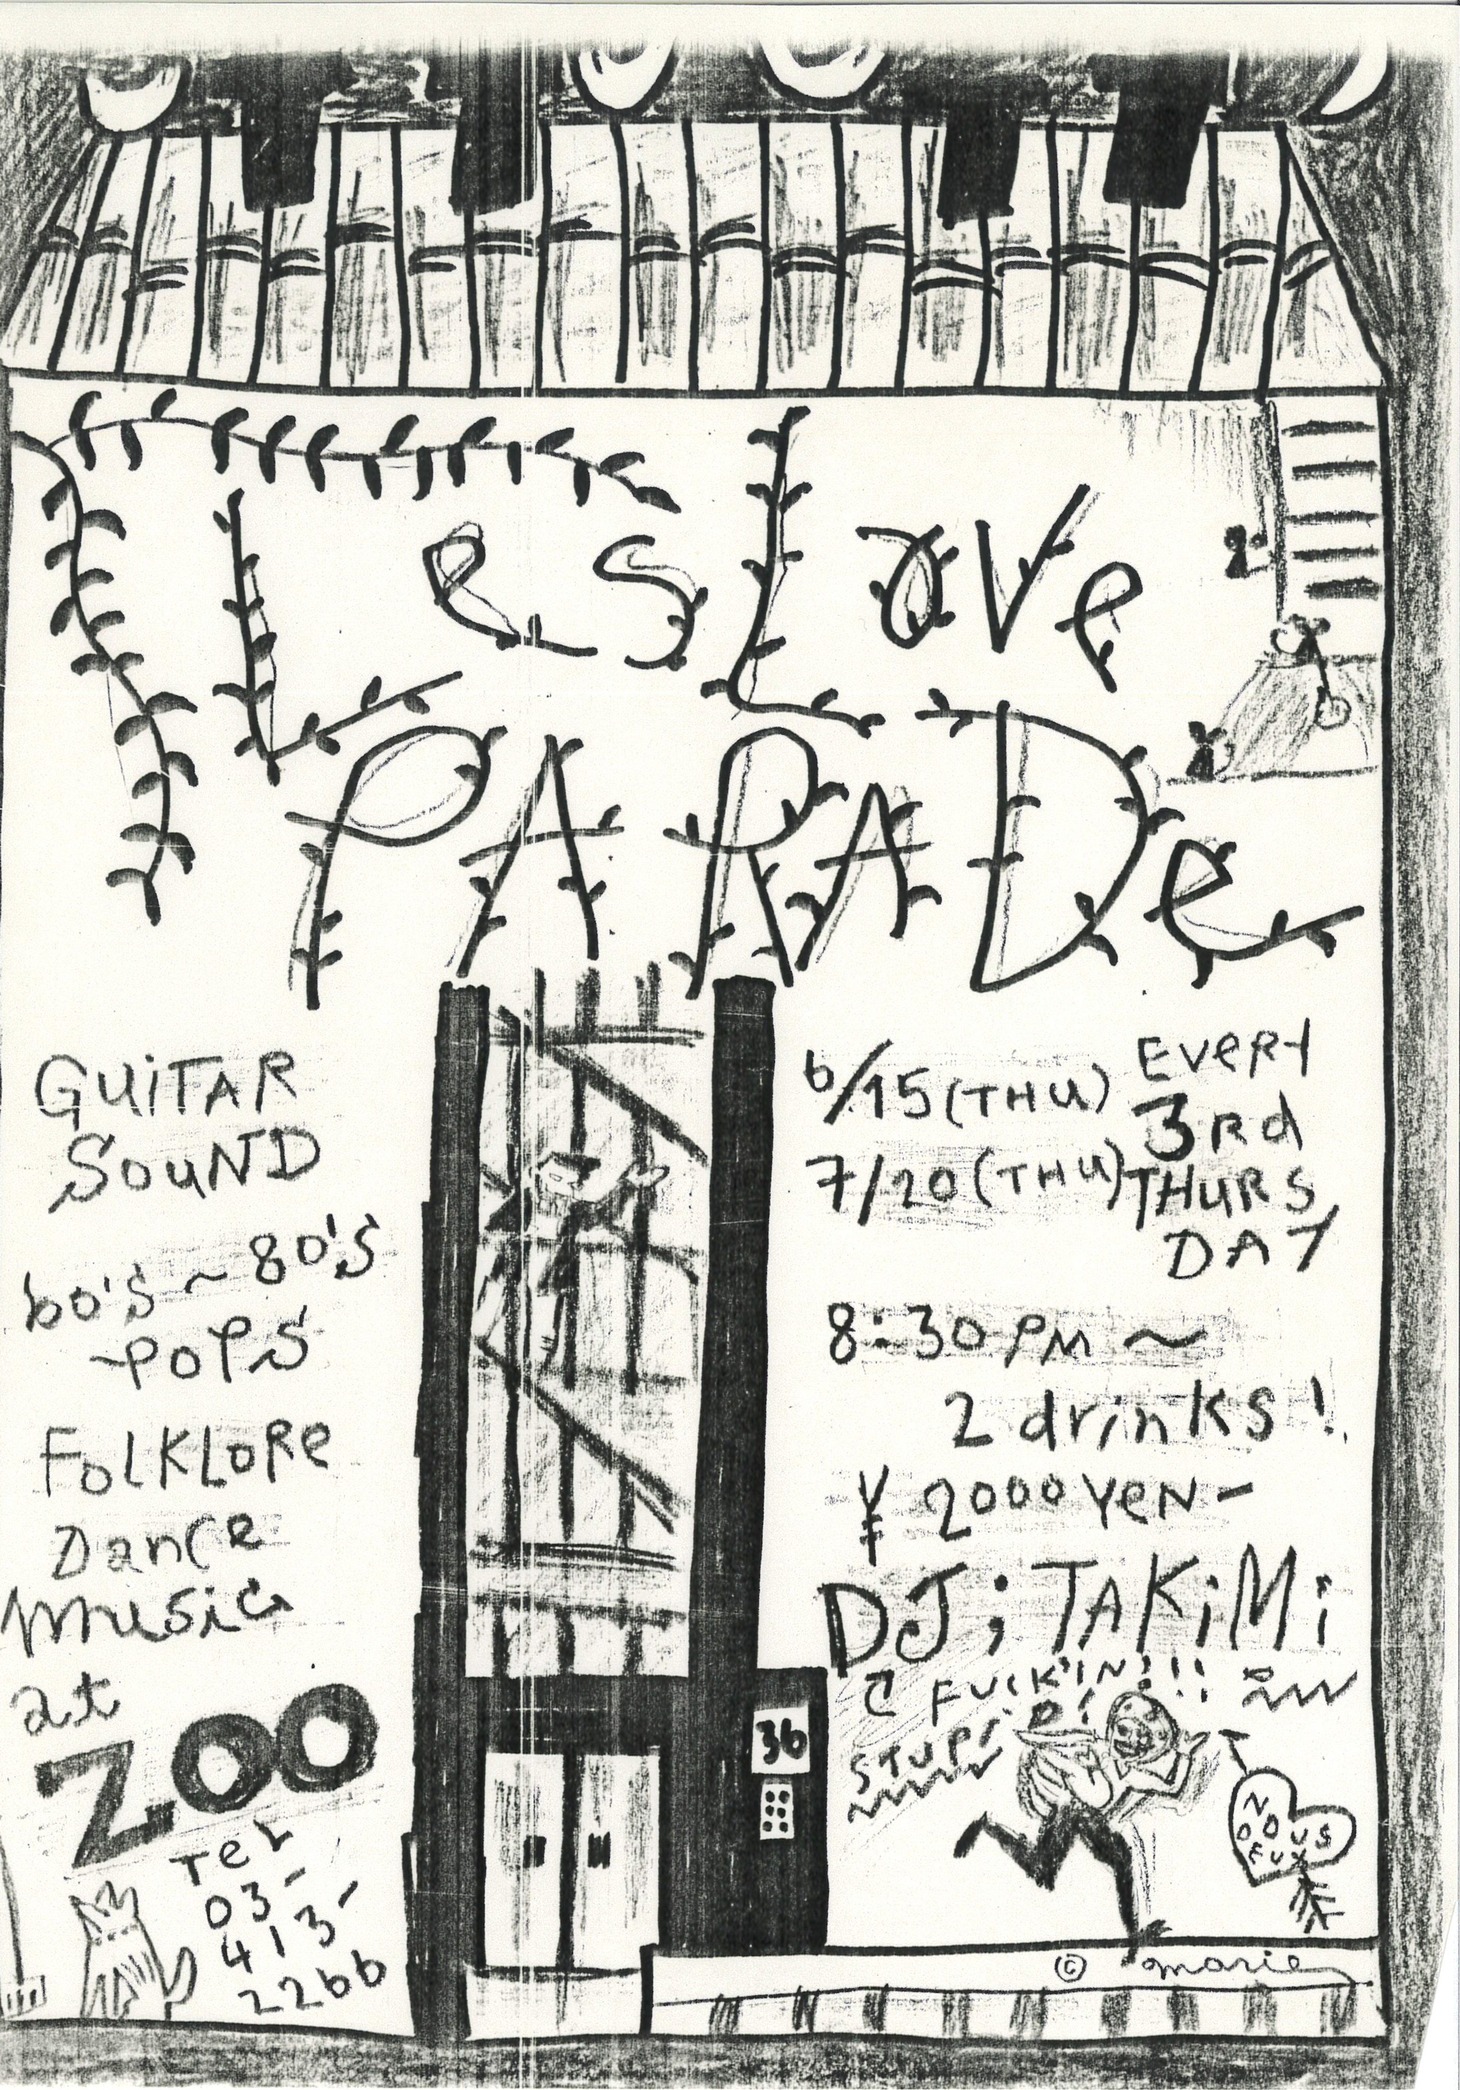 Les Love
PARADe
GUiTAR
SOUND
60'S ~ 80'S
POPS
FOLKLORe
Dance
Music
at
ZOO
TEL
03-
413-
2266
6/15 (THU)
7/20 (THU)
EVERY
3Rd
THURS
DAY
8:30 PM ~
2 drinks!
¥ 2000 YeN-
DJ; TAKiMi
FUCK'IN!!!
STUPiD!
36
© marie